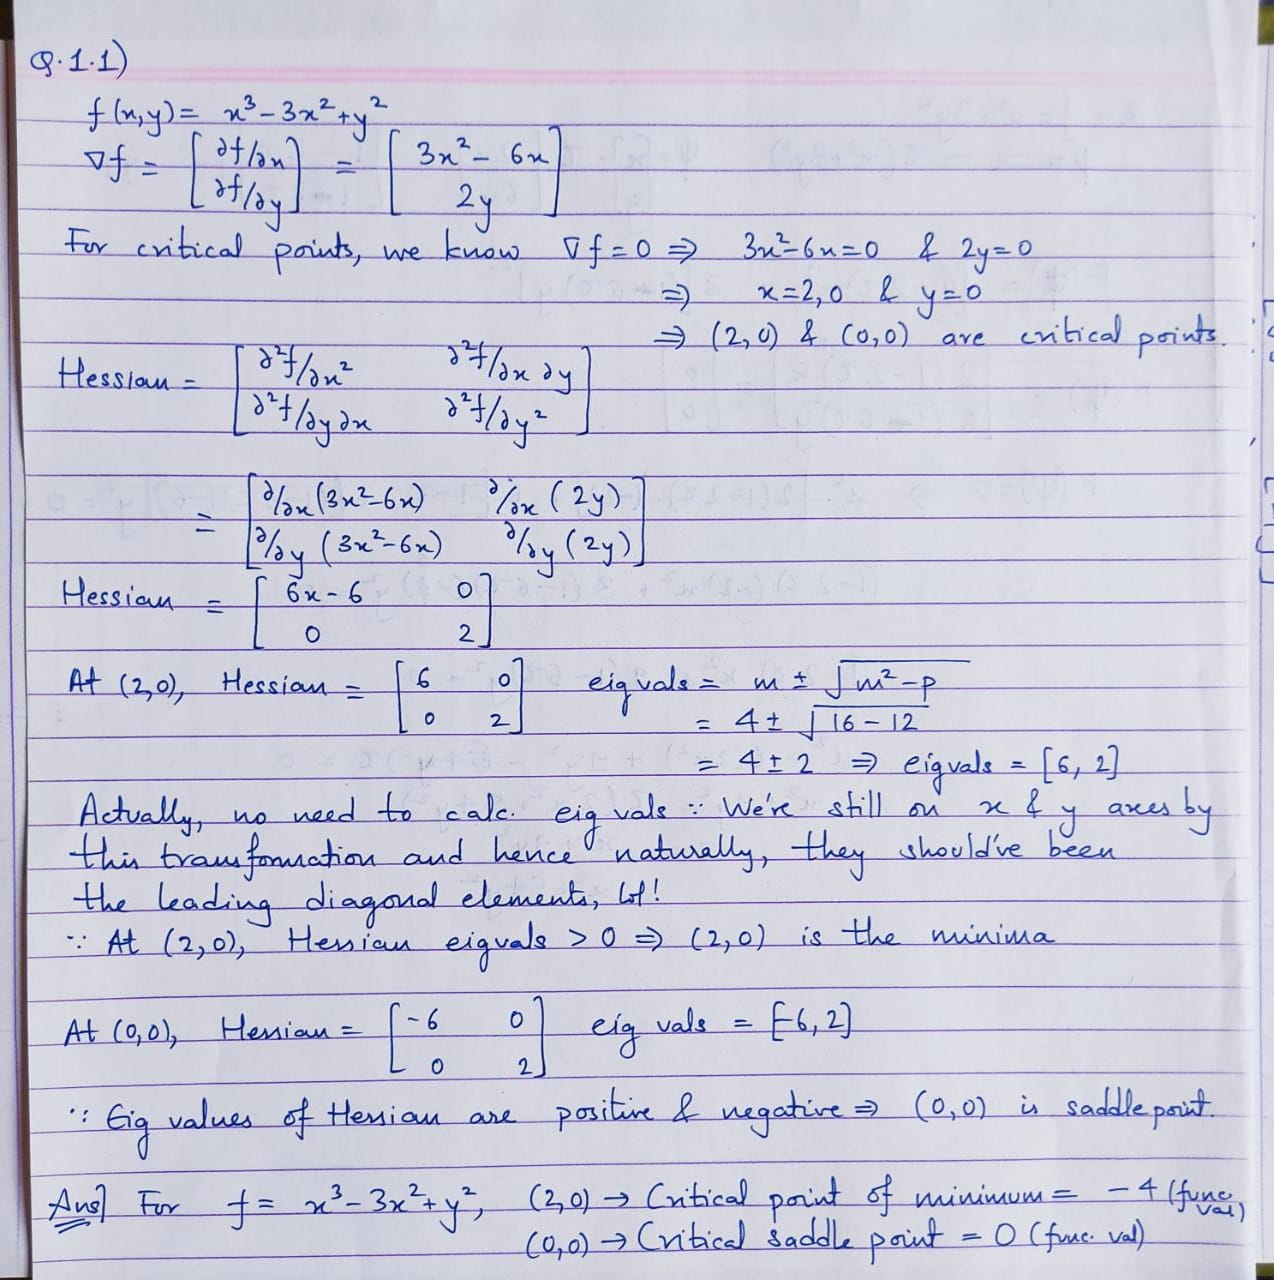 Q.1.1)
f(x,y) = x³ - 3x² + y²
∇f = [ ∂f/∂x ; ∂f/∂y ] = [ 3x² - 6x ; 2y ]
For critical points, we know ∇f = 0 ⇒ 3x²-6x=0 & 2y=0
⇒ x=2,0 & y=0
⇒ (2,0) & (0,0) are critical points.
Hessian = [ ∂²f/∂x² ∂²f/∂x∂y ; ∂²f/∂y∂x ∂²f/∂y² ]
= [ ∂/∂x (3x²-6x) ∂/∂x (2y) ; ∂/∂y (3x²-6x) ∂/∂y (2y) ]
Hessian = [ 6x-6 0 ; 0 2 ]
At (2,0), Hessian = [ 6 0 ; 0 2 ] eigvals = m ± √(m²-p)
= 4 ± √(16-12)
= 4 ± 2 ⇒ eigvals = [6, 2]
Actually, no need to calc. eig vals ∵ We're still on x & y axes by
this transformation and hence naturally, they should've been
the leading diagonal elements, lol!
∵ At (2,0), Hessian eigvals > 0 ⇒ (2,0) is the minima
At (0,0), Hessian = [ -6 0 ; 0 2 ] eig vals = [-6, 2]
∵ Eig values of Hessian are positive & negative ⇒ (0,0) is saddle point.
Ans] For f = x³ - 3x² + y², (2,0) → Critical point of minimum = -4 (func. val)
(0,0) → Critical saddle point = 0 (func. val)